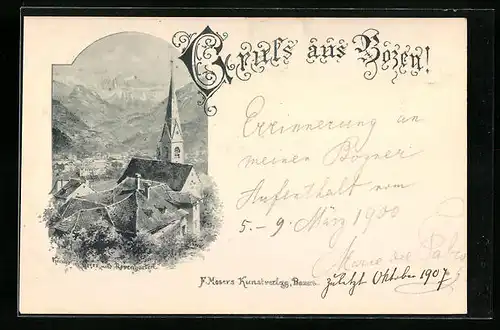 Gruss aus Bozen!
Errinnerung an
meinen Bozner
Aufenthalt vom
5.-9. März 1900
Marie del
zuletzt Oktober 1907
F. Mosers Kunstverlag, Bozen.